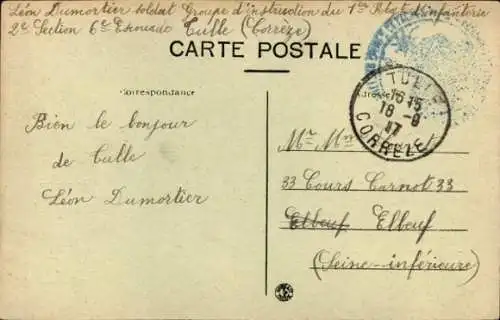 Léon Dumortier soldat Groupe d'instruction du 1er d'infanterie
2e Section 6e Escouade Tulle (Corrèze)
CARTE POSTALE
TULLE
16 15
18 - 8
17
CORREZE
Correspondance
Adresse
Bien le bonjour
de Tulle
Léon Dumortier
Mr Mm
33 Cours Carnot 33
Elbeuf Elbeuf
(Seine-inférieure)